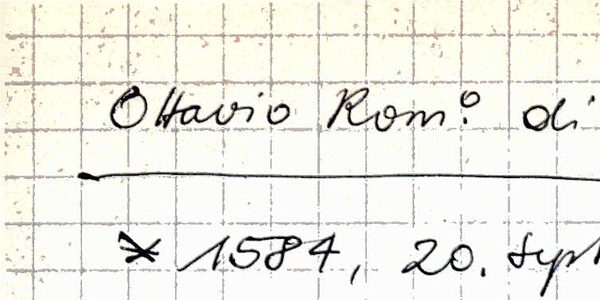 Ottavio Rom.º di
* 1584, 20. Sept